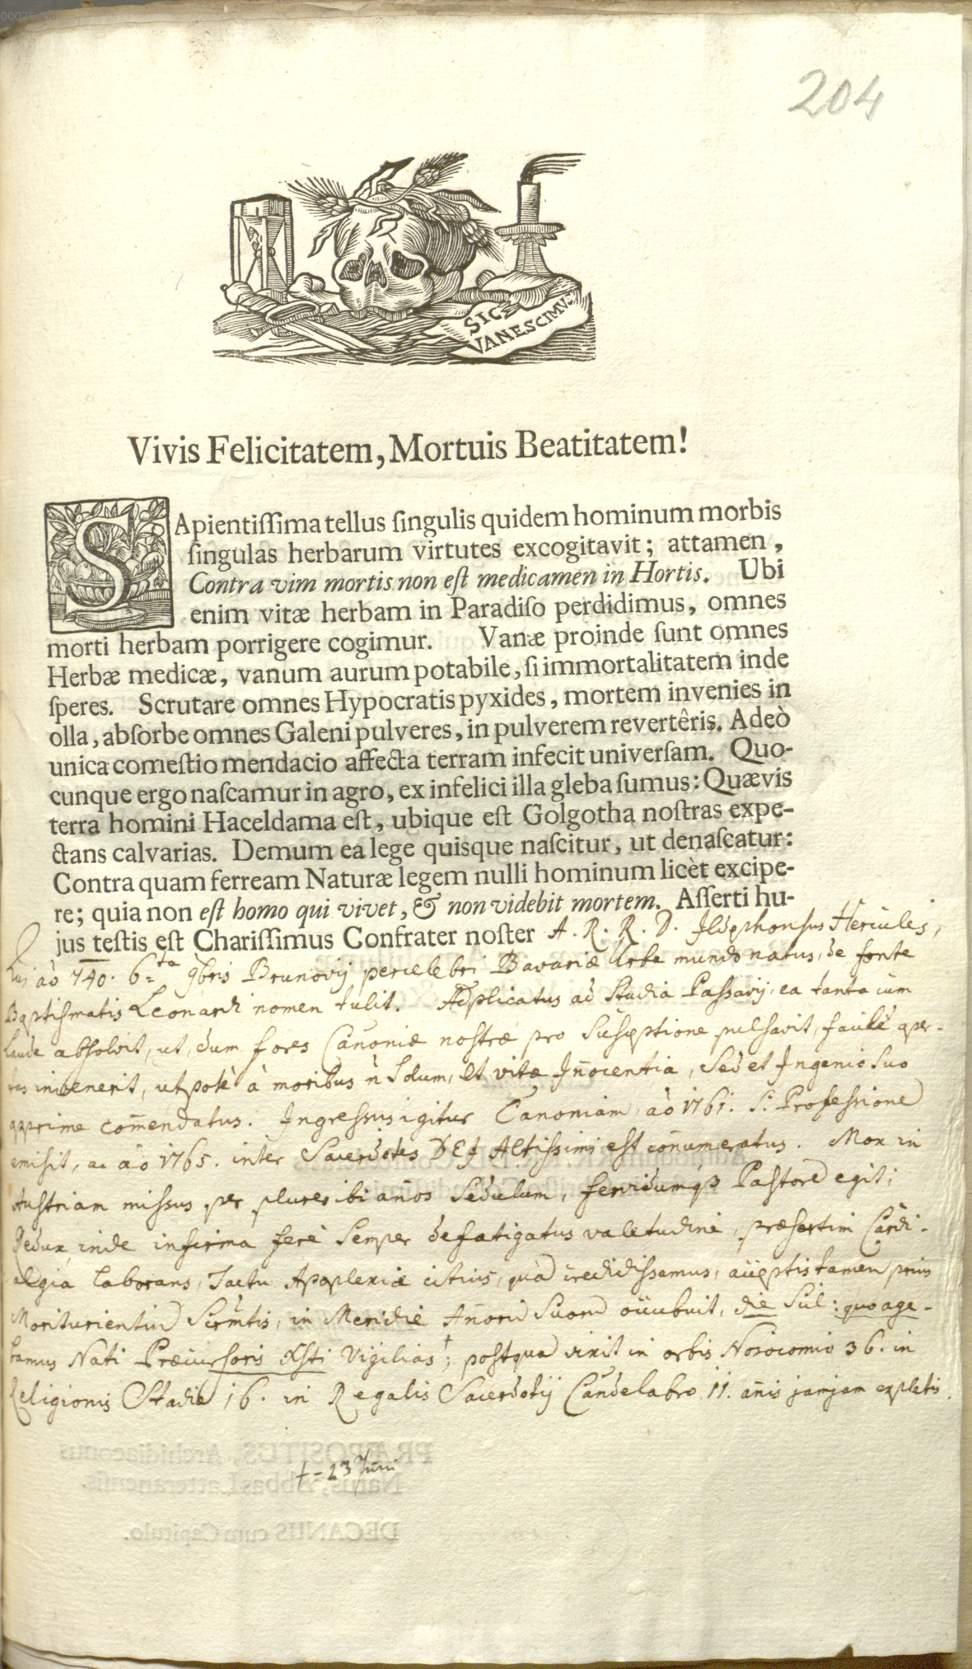 204
SIC
VANESCIMUS
Vivis Felicitatem, Mortuis Beatitatem!
SApientiſſima tellus ſingulis quidem hominum morbis
ſingulas herbarum virtutes excogitavit; attamen,
Contra vim mortis non eſt medicamen in Hortis. Ubi
enim vitæ herbam in Paradiſo perdidimus, omnes
morti herbam porrigere cogimur. Vanæ proinde ſunt omnes
Herbæ medicæ, vanum aurum potabile, ſi immortalitatem inde
ſperes. Scrutare omnes Hypocratis pyxides, mortem invenies in
olla, abſorbe omnes Galeni pulveres, in pulverem revertêris. Adeò
unica comeſtio mendacio affecta terram infecit univerſam. Quo-
cunque ergo naſcamur in agro, ex infelici illa gleba ſumus: Quævis
terra homini Haceldama eſt, ubique eſt Golgotha noſtras expe-
ctans calvarias. Demum ea lege quisque naſcitur, ut denaſcatur:
Contra quam ferream Naturæ legem nulli hominum licèt excipe-
re; quia non eſt homo qui vivet, & non videbit mortem. Aſſerti hu-
jus teſtis eſt Chariſſimus Confrater noſter A. R. R. D. Ildephonsus Hercules,
qui aõ 740. 6ta 9bris Brunovij percelebri Bavariæ Urbe mundo natus, de fonte
Baptismatis Leonardi nomen tulit. Applicatus ad Studia Passavij, ea tanta cum
laude absolvit, ut, dum fores Canoniæ nostræ pro Susceptione pulsavit, faciles aper-
tas invenerit, utpote à moribus ñ Solum, et vitæ Iñocentia, Sed et Ingenio Suo
apprime com̃endatus. Ingressus igitur Canoniam aõ 1761. S. Professione
emisit, ac aõ 1765. inter Sacerdotes DEI Altissimi est coñumeratus. Mox in
Austriam missus per plures ibi años Sedulum, fervidumq3 Pastore egit;
Redux inde infirma fere Semper defatigatus valetudine, præsertim Cardi-
algia laborans, Tactu Apoplexiæ citius, quã credidissemus, acceptis tamen prius
Morientium Scrm̃tis, in Meridie Añorũ Suorũ occubuit, die Scil: quo age-
bamus Nati Præcursoris Xsti Vigilias†; postquã vixit in orbis Nosocomio 36. in
Religionis Stadio 16. in Regalis Sacerdotij Candelabro 11. añis jamjam expletis.
† = 23 Juni
PRÆPOSITUS, Archidiaconus
Natus, Abbas Lateranensis.
DECANUS cum Capitulo.